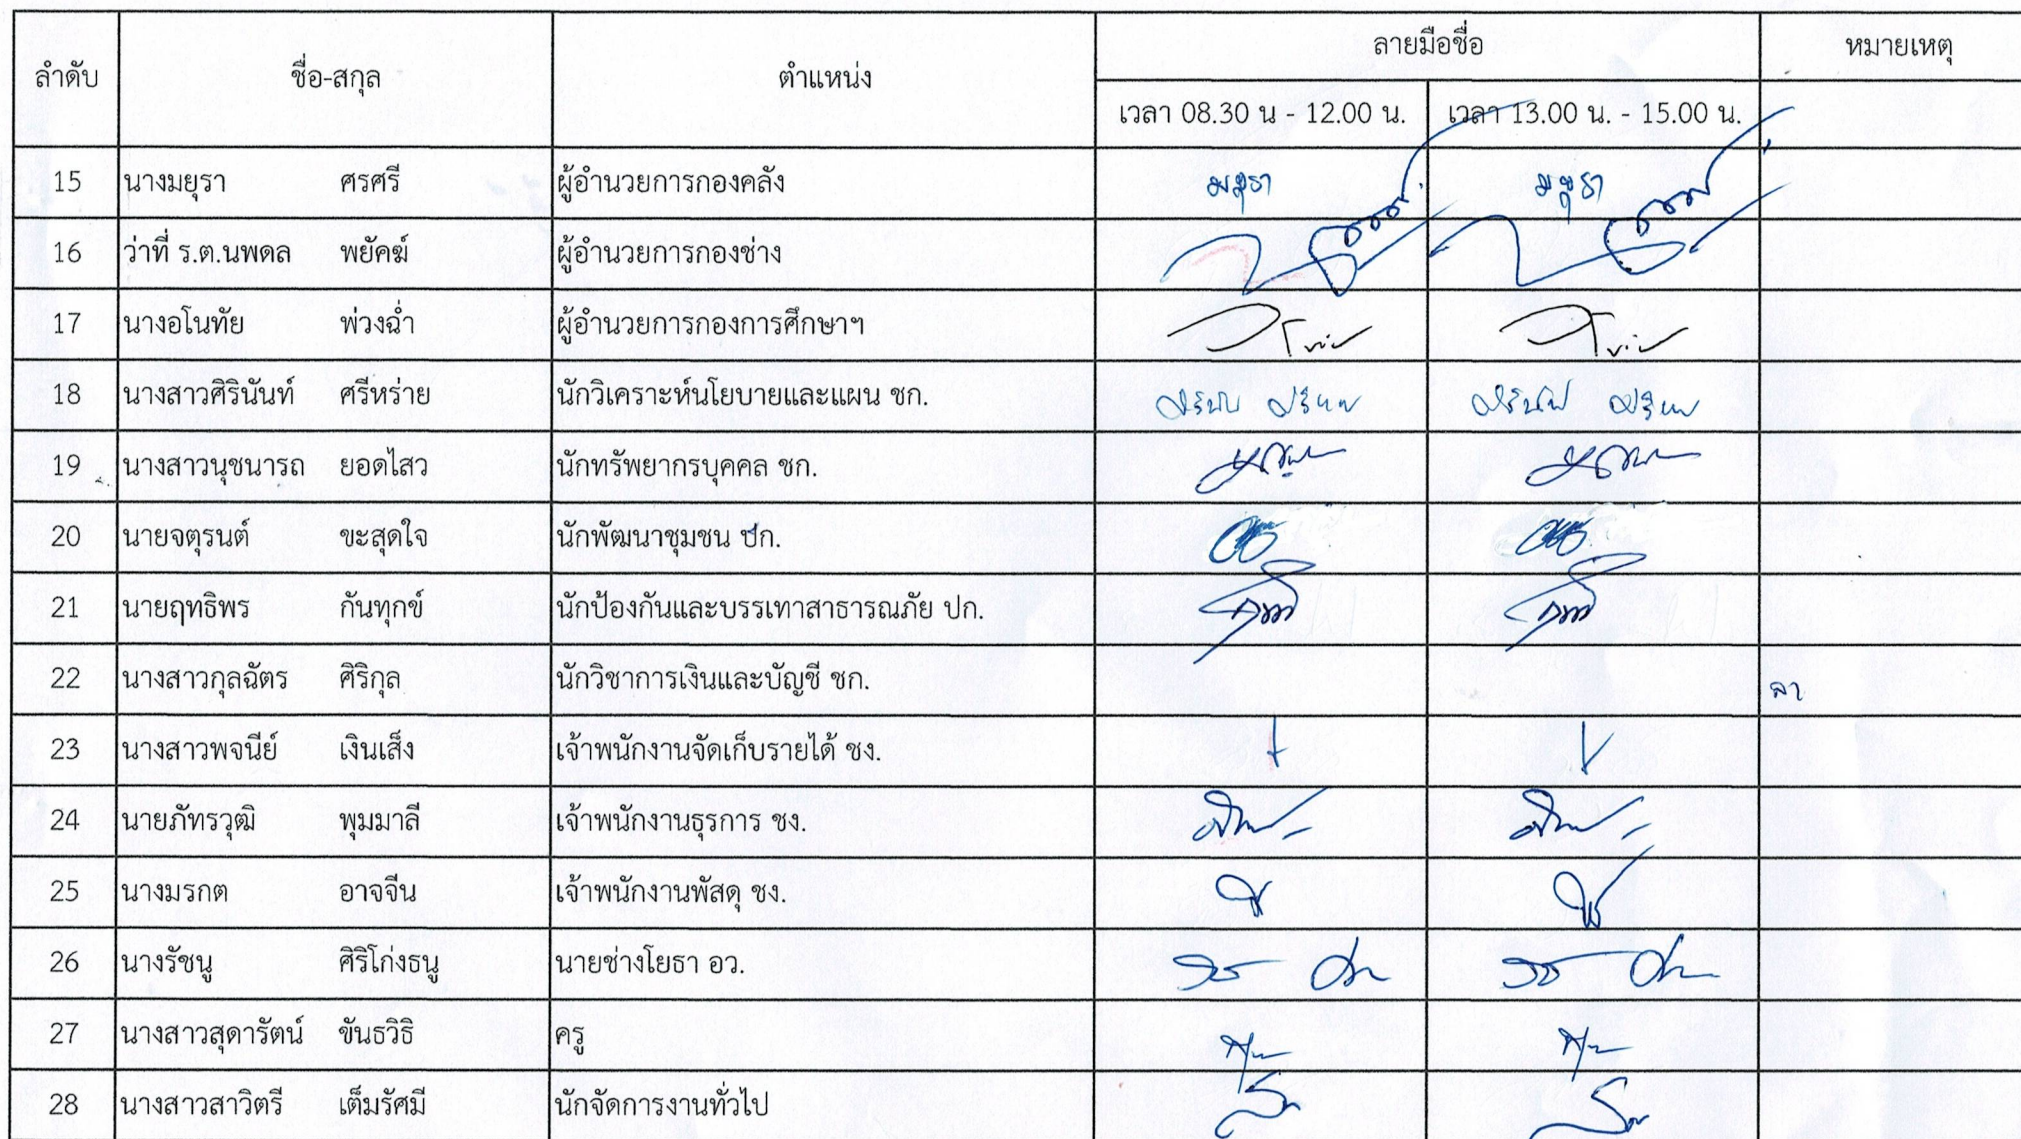 ลำดับ ชื่อ-สกุล ตำแหน่ง ลายมือชื่อ หมายเหตุ
เวลา 08.30 น - 12.00 น. เวลา 13.00 น. - 15.00 น.
15 นางมยุรา ศรศรี ผู้อำนวยการกองคลัง มยุรา มยุรา
16 ว่าที่ ร.ต.นพดล พยัคฆ์ ผู้อำนวยการกองช่าง
17 นางอโนทัย พ่วงฉ่ำ ผู้อำนวยการกองการศึกษาฯ
18 นางสาวศิรินันท์ ศรีหร่าย นักวิเคราะห์นโยบายและแผน ชก.
19 นางสาวนุชนารถ ยอดไสว นักทรัพยากรบุคคล ชก.
20 นายจตุรนต์ ขะสุดใจ นักพัฒนาชุมชน ปก.
21 นายฤทธิพร กันทุกข์ นักป้องกันและบรรเทาสาธารณภัย ปก.
22 นางสาวกุลฉัตร ศิริกุล นักวิชาการเงินและบัญชี ชก. ลา
23 นางสาวพจนีย์ เงินเส็ง เจ้าพนักงานจัดเก็บรายได้ ชง.
24 นายภัทรวุฒิ พุมมาลี เจ้าพนักงานธุรการ ชง.
25 นางมรกต อาจจีน เจ้าพนักงานพัสดุ ชง.
26 นางรัชนู ศิริโก่งธนู นายช่างโยธา อว.
27 นางสาวสุดารัตน์ ขันธวิธิ ครู
28 นางสาวสาวิตรี เต็มรัศมี นักจัดการงานทั่วไป